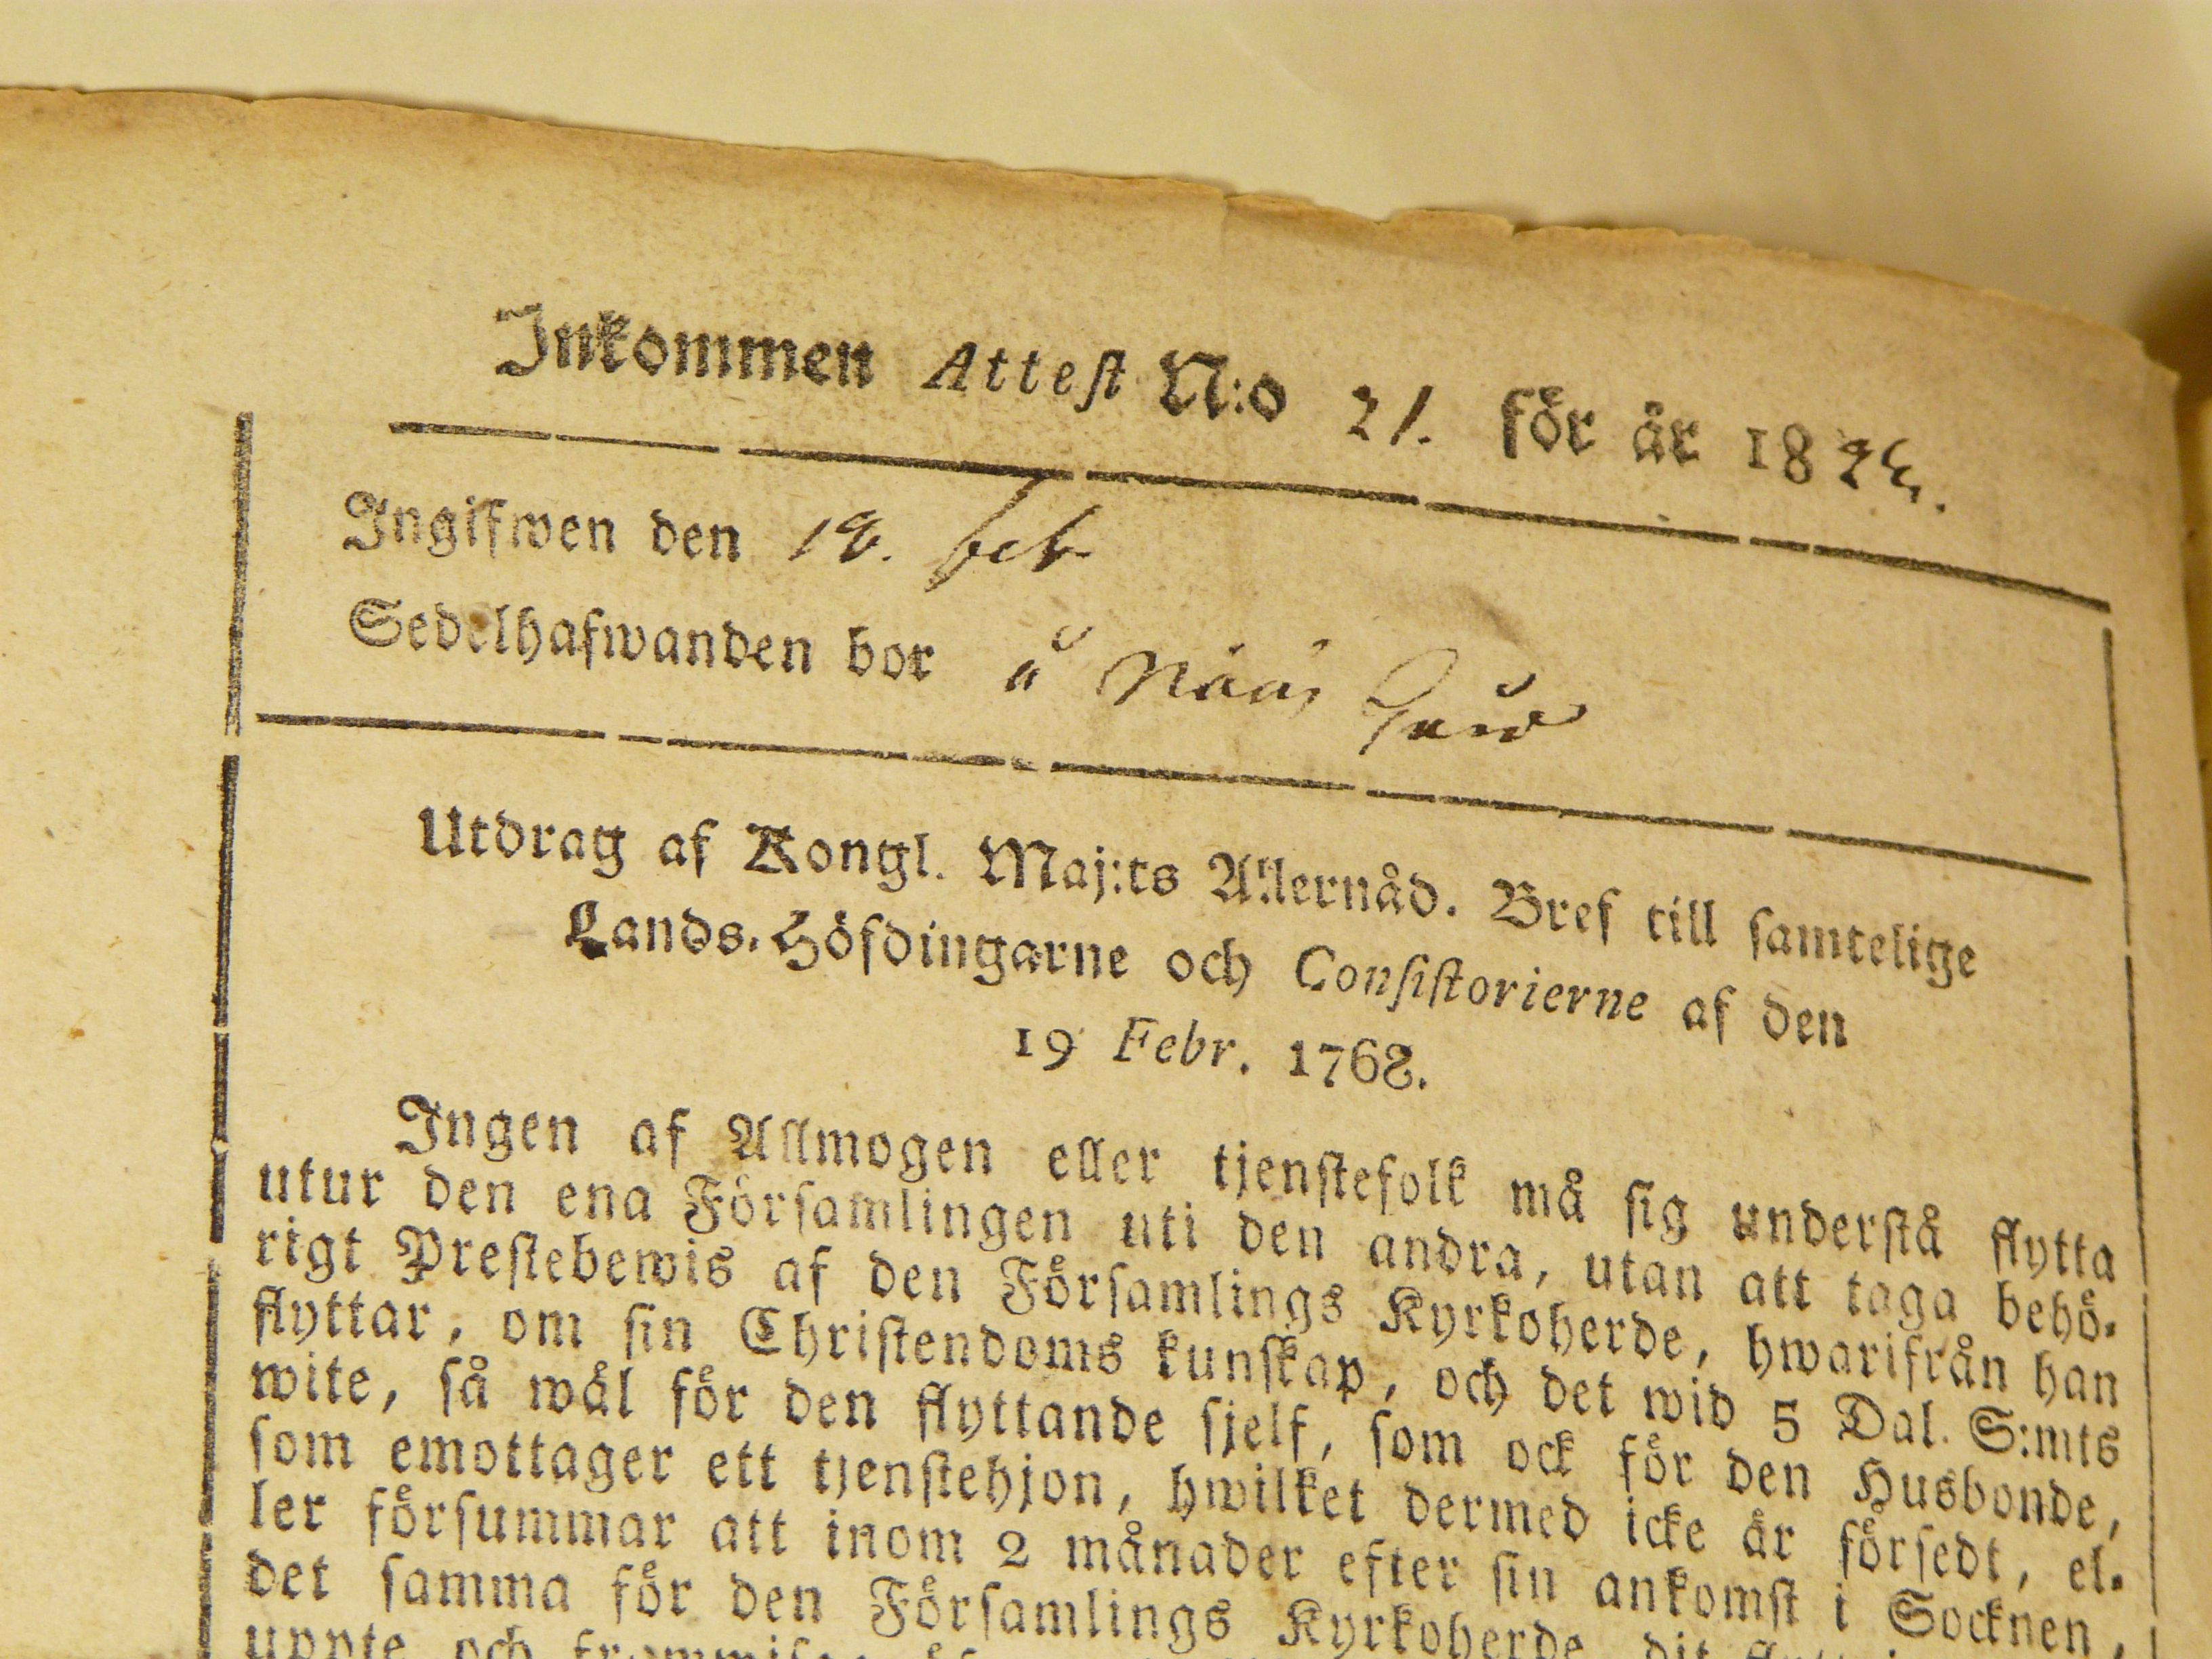 Inkommen Attest N:o 21. för år 1824.
Ingifwen den 18. feb
Sedelhafwanden bor å Nääs
Utdrag af Kongl. Maj:ts Allernåd. Bref till samtelige
Lands-Höfdingarne och Consistorierne af den
19 Febr. 1768.
Ingen af Allmogen eller tjenstefolk må sig understå flytta
utur den ena Församlingen uti den andra, utan att taga behö-
rigt Prestebewis af den Församlings Kyrkoherde, hwarifrån han
flyttar, om sin Christendoms kunskap, och det wid 5 Dal. S:mts
wite, så wäl för den flyttande sjelf, som ock för den Husbonde,
som emottager ett tjenstehjon, hwilket dermed icke är försedt, el-
ler försummar att inom 2 månader efter sin ankomst i Socknen,
det samma för den Församlings Kyrkoherde, dit
uppte och